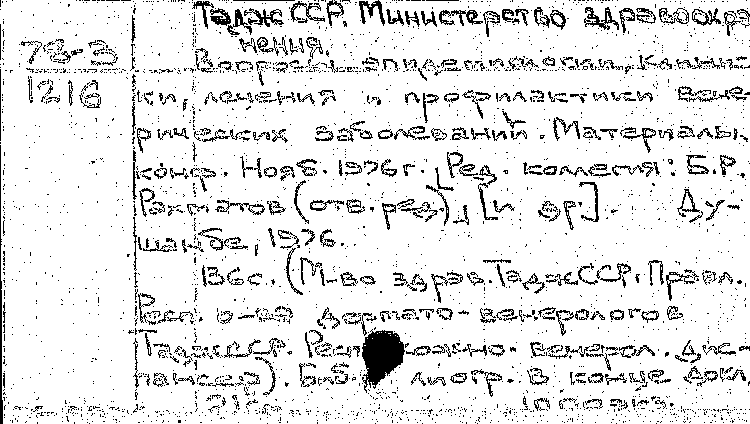 ТаджССР. Министерство здравоохра
нения.
78-3
Вопросы эпидемиологии, клиник
1216
ки, лечения и профилактики вене-
рических заболеваний. Материалы
конф. Нояб. 1976 г. [Ред. коллегия: Б.Р.
Рахматов (отв. ред.)] [и др.]. Ду-
шанбе, 1976.
136 с. (М-во здрав. ТаджССР. Правл.
Респ. о-ва дермато-венерологов
ТаджССР. Респ. кожно-венерол. дис-
пансер). Библиогр. в конце докл.
экз.